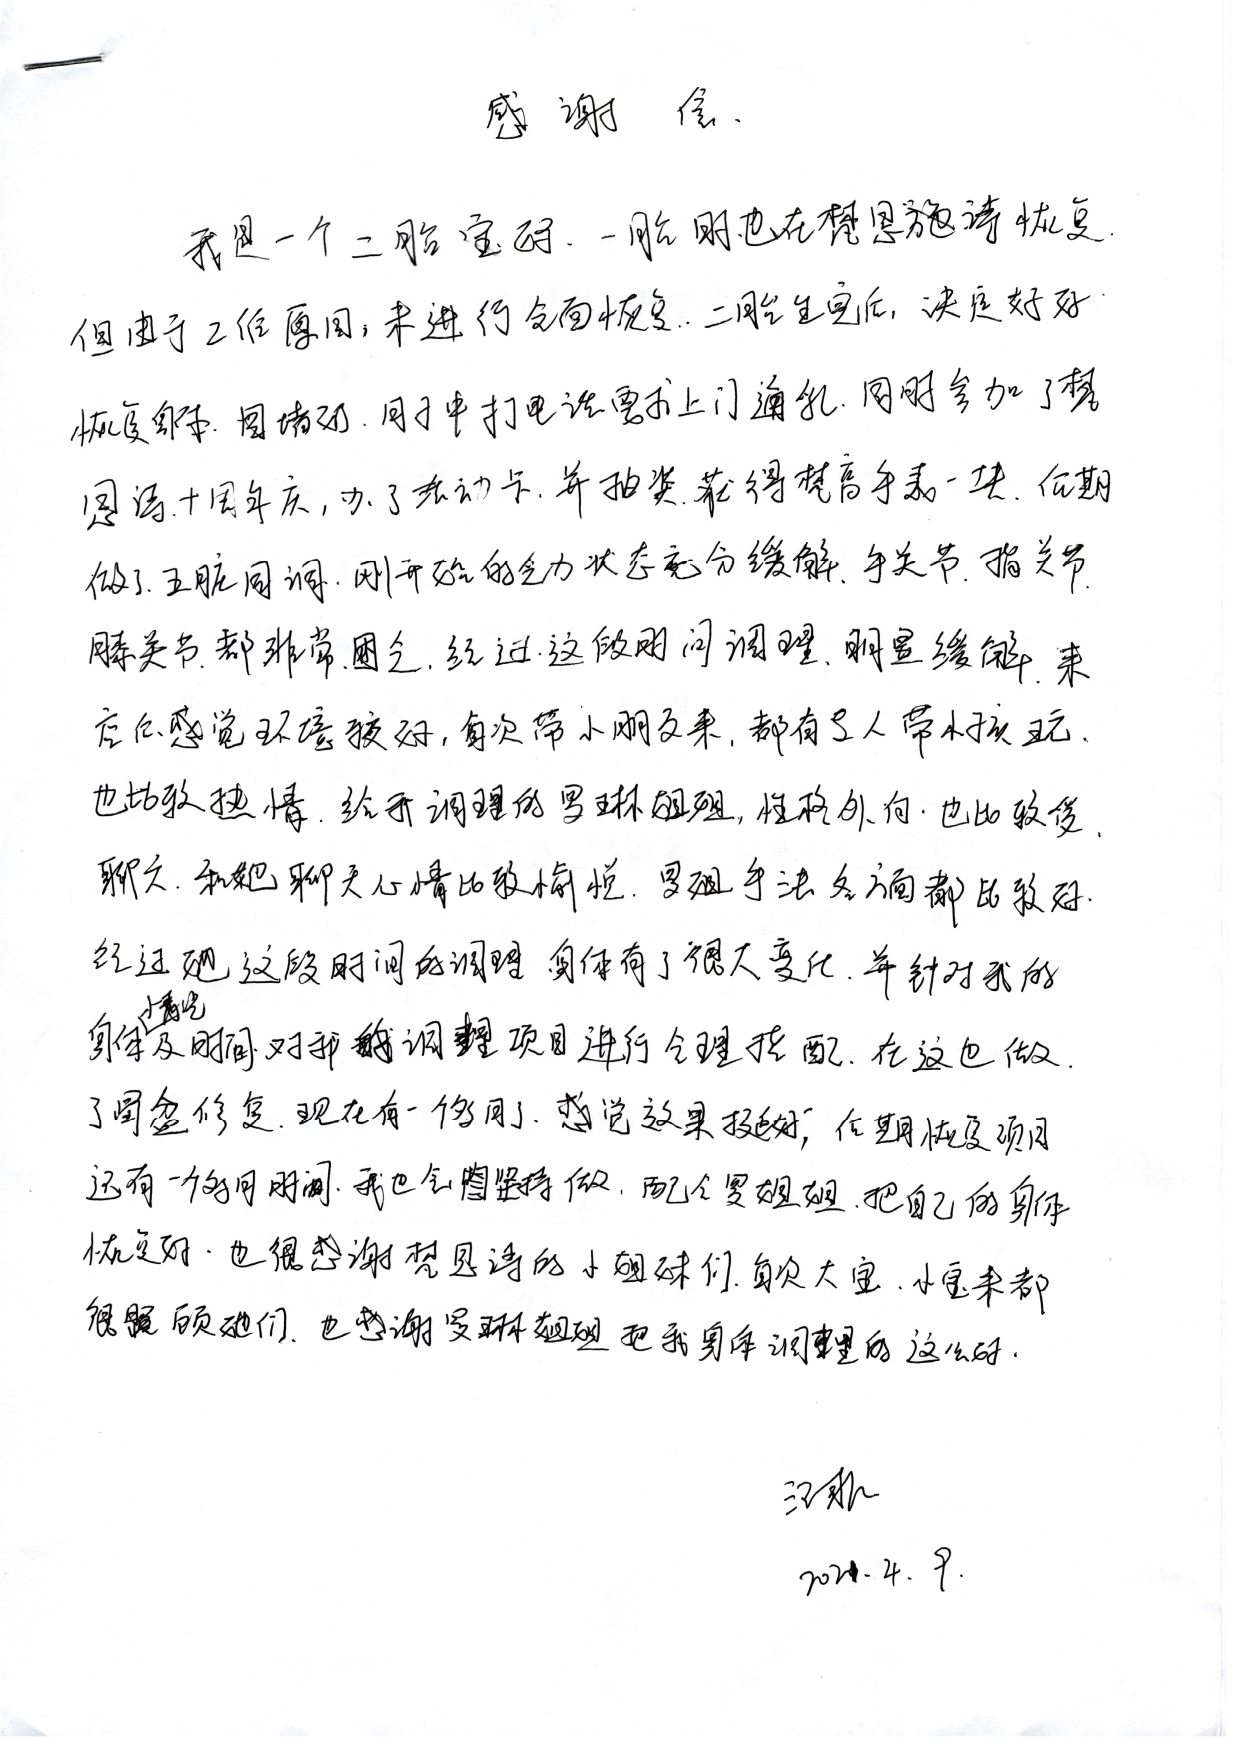 感谢信.
我是一个二胎宝妈.一胎时也在梵恩施诗恢复.
但由于工作原因,未进行全面恢复.二胎生完后,决定好好
恢复身体.因堵奶.用手中打电话要求上门通乳.同时参加了梵
恩诗十周年庆,办了活动卡.并抽奖.获得梵高手表一块.后期
做了五脏同调.刚开始的乏力状态充分缓解、手关节.指关节
膝关节.都非常困乏.经过这段时间调理、明显缓解.来
店后感觉环境较好,每次带小朋友来,都有专人带小孩玩.
也比较热情.给我调理的罗琳姐姐,性格外向.也比较爱
聊天.和她聊天心情比较愉悦.罗姐手法各方面都比较好.
经过她这段时间的调理身体有了很大变化.并针对我的
身体情况及时间对我调理项目进行合理搭配.在这也做
了骨盆修复.现在有一个多月了.感觉效果挺好,后期恢复项目
还有一个多月时间.我也会坚持做.配合罗姐姐.把自己的身体
恢复好.也很感谢梵恩诗的小姐妹们.每次大宝.小宝来都
很照顾她们.也感谢罗琳姐姐把我身体调理的这么好.
2021.4.9.